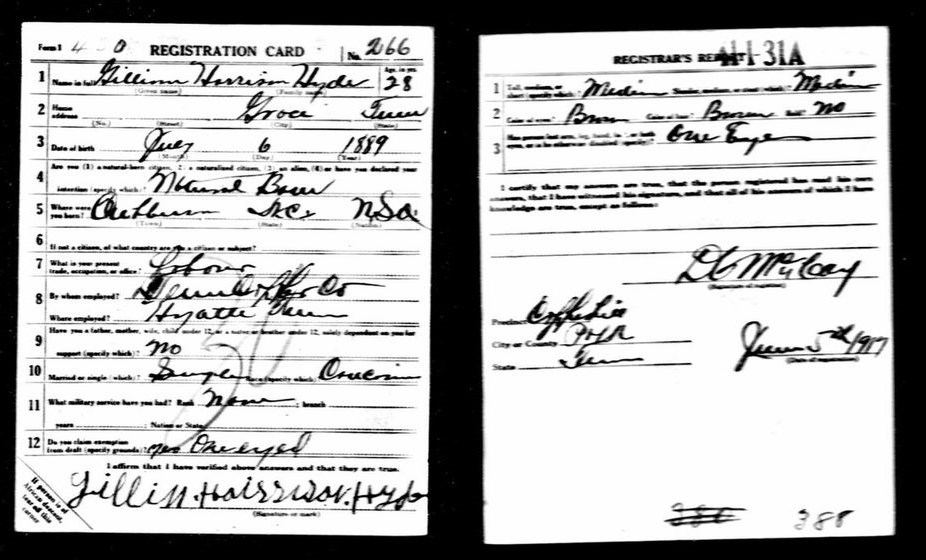 Form 1 450 REGISTRATION CARD No. 266
1 Name in full Gillian Harrison Hyde Age, in yrs. 28
(Given name) (Family name)
2 Home address Tenn
(No.) (Street) (City) (State)
3 Date of birth July 6 1889
(Month) (Day) (Year)
4 Are you (1) a natural-born citizen, (2) a naturalized citizen, (3) an alien, (4) or have you declared your
intention (specify which)? Natural Born
5 Where were you born? N.C. U.S.A.
(Town) (State) (Nation)
6 If not a citizen, of what country are you a citizen or subject?
7 What is your present trade, occupation, or office? Labour
8 By whom employed? Co
Where employed? Hyatte Tenn
9 Have you a father, mother, wife, child under 12, or a sister or brother under 12, solely dependent on you for
support (specify which)? No
10 Married or single (which)? Single Race (specify which)?
11 What military service have you had? Rank None ; branch
years ; Nation or State
12 Do you claim exemption from draft (specify grounds)? yes One eyed
I affirm that I have verified above answers and that they are true.
Gillin. Hairrison. Hyde
(Signature or mark)
If person is of African descent, tear off this corner
REGISTRAR'S REPORT 41-31A
1 Tall, medium, or short (specify which)? Medium Slender, medium, or stout (which)? Medium
2 Color of eyes? Brown Color of hair? Brown Bald? No
3 Has person lost arm, leg, hand, foot, or both eyes, or is he otherwise disabled (specify)? One Eye
I certify that my answers are true, that the person registered has read his own
answers, that I have witnessed his signature, and that all of his answers of which I have
knowledge are true, except as follows:
McCay
(Signature of registrar)
Precinct
City or County Polk
State Tenn
June 5th/1917
(Date of registration)
380 388